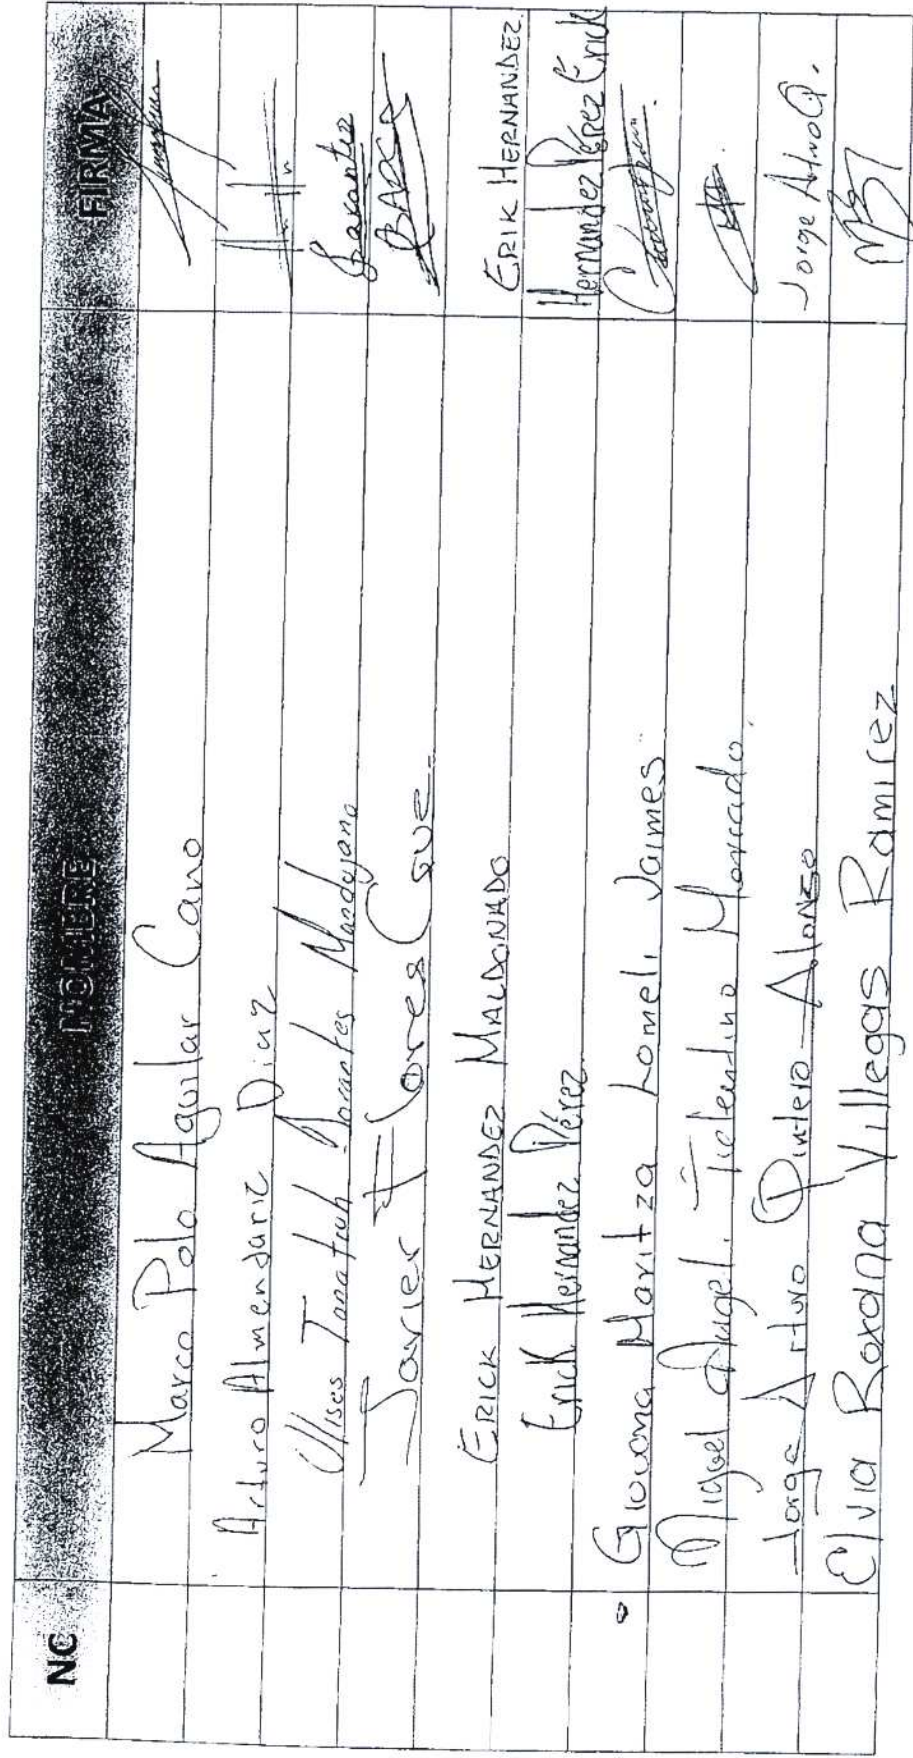 NC NOMBRE FIRMA
Marco Polo Aguilar Cano
Arturo Almendariz Diaz
Ulises Barantes Mandujano Barantes
Javier Flores Cove BARCO
ERICK HERNANDEZ MALDONADO ERIK HERNANDEZ
Erick Hernandez Pérez Hernandez Pérez Erick
Giovana Maritza Lomeli Jaimes
Miguel Angel Tolentino Mercado.
Jorge Arturo Quintero Alonzo Jorge Arturo Q.
Elvia Roxana Villegas Ramirez